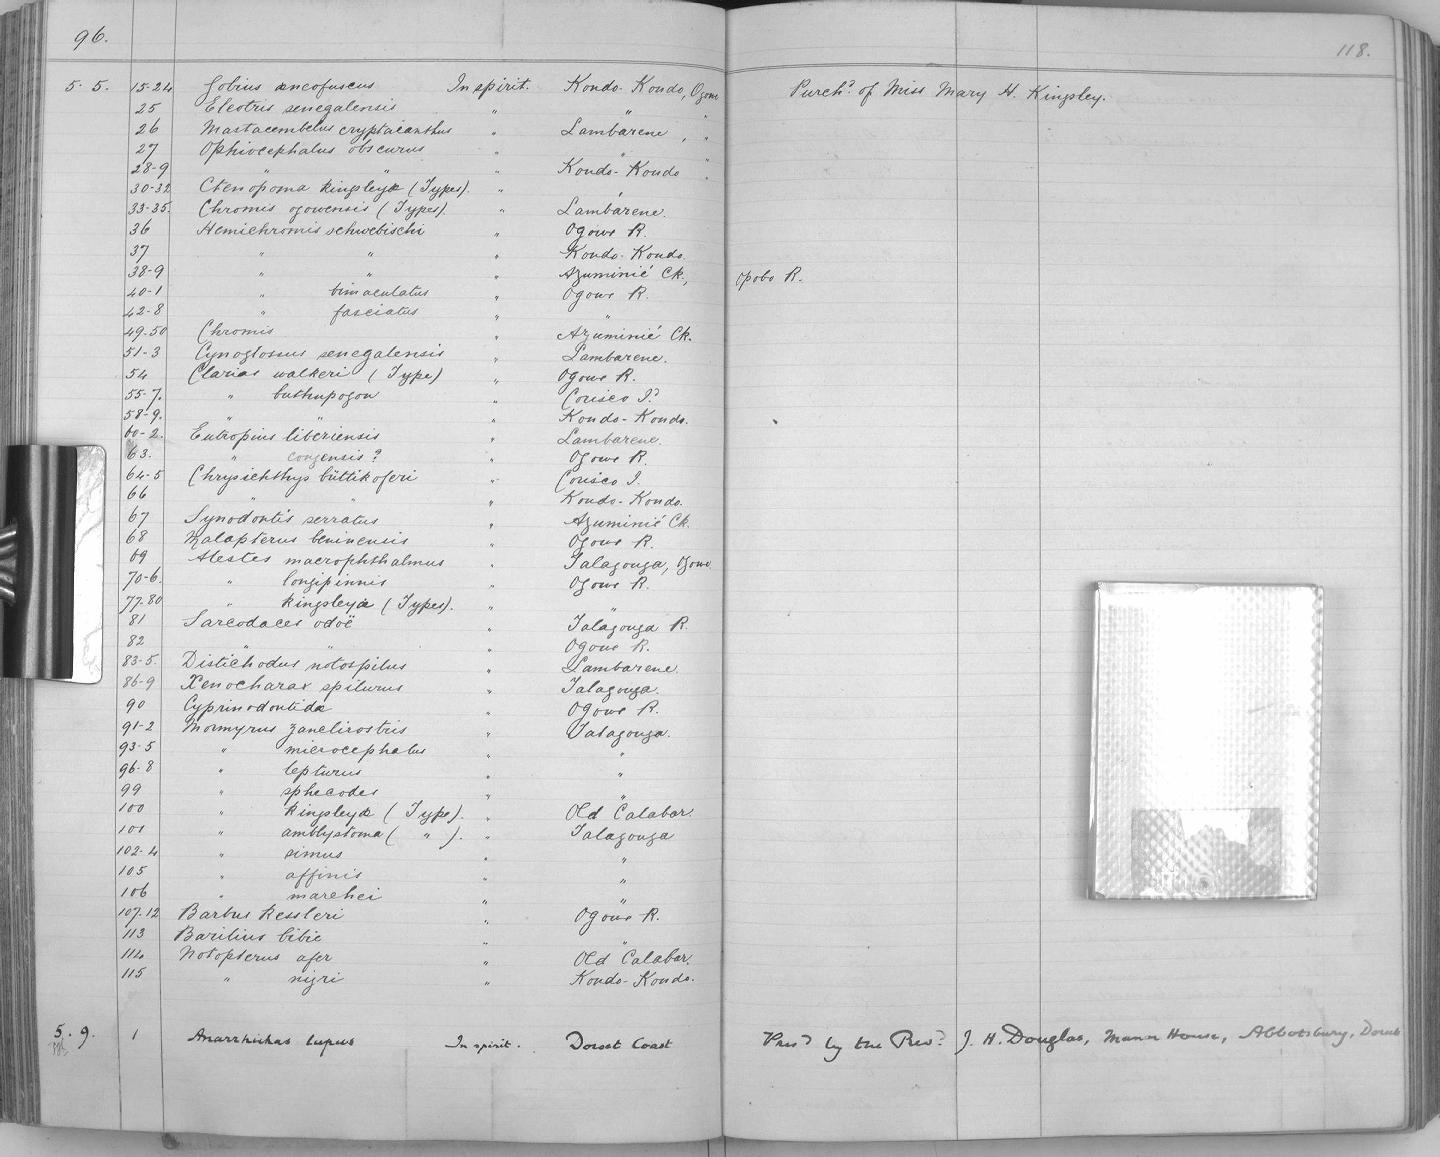 96.
118.
5. 5. 15-24 Gobius æneofuscus In spirit. Kondo-Kondo, Ogowe Purchd. of Miss Mary H. Kingsley.
25 Eleotris senegalensis " " "
26 Mastacembelus cryptacanthus " Lambarene, "
27 Ophiocephalus obscurus " " "
28-9 " " " Kondo-Kondo "
30-32 Ctenopoma kingsleyæ (Types). " "
33-35. Chromis ogowensis (Types). " Lambarene.
36 Hemichromis schwebischi " Ogowe R.
37 " " " Kondo-Kondo.
38-9 " " " Azuminié Ck., Opobo R.
40-1 " bimaculatus " Ogowe R.
42-8 " fasciatus " "
49-50 Chromis " Azuminié Ck.
51-3 Cynoglossus senegalensis " Lambarene.
54 Clarias walkeri (Type) " Ogowe R.
55-7. " buthupogon " Corisco Id.
58-9. " " " Kondo-Kondo.
60-2. Eutropius liberiensis " Lambarene.
63. " congensis? " Ogowe R.
64-5 Chrysichthys büttikoferi " Corisco I.
66 " " " Kondo-Kondo.
67 Synodontis serratus " Azuminié Ck.
68 Malapterus beninensis " Ogowe R.
69 Alestes macrophthalmus " Talagouga, Ogowe.
70-6. " longipinnis " Ogowe R.
77-80 " kingsleyæ (Types). " "
81 Sarcodaces odoë " Talagouga R.
82 " " " Ogowe R.
83-5. Distichodus notospilus " Lambarene.
86-9 Xenocharax spilurus " Talagouga.
90 Cyprinodontidæ " Ogowe R.
91-2 Mormyrus zanclirostris " Talagouga.
93-5 " microcephalus " "
96-8 " lepturus " "
99 " sphecodes " "
100 " kingsleyæ (Type). " Old Calabar.
101 " amblystoma ( " ). " Talagouga
102-4 " simus " "
105 " affinis " "
106 " marchei " "
107-12 Barbus kessleri " Ogowe R.
113 Barilius bibie " "
114 Notopterus afer " Old Calabar.
115 " nigri " Kondo-Kondo.
5. 9. 1 Anarrhichas lupus In spirit. Dorset Coast Presd by the Revd. J. H. Douglas, Manor House, Abbotsbury, Dorset